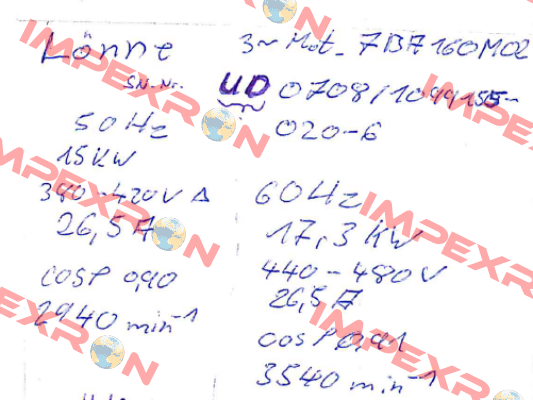 Lönne 3~ Mot. 7BA160M02
SN-Nr. UD 0708/1044155-
020-6
50Hz
15KW
380-420V Δ
26,5A
cosφ 0,90
2940 min⁻¹
60Hz
17,3KW
440-480V
26,5A
cosφ 0,91
3540 min⁻¹
IMPEXRON
IMPEXRON
IMPEXRON
IMPEXRON
IMPEXRON
IMPEXRON